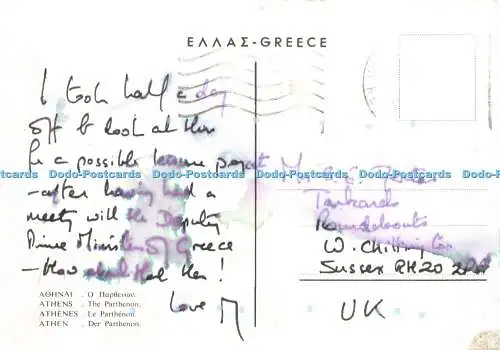 ΕΛΛΑΣ-GREECE
I took half a day
off to look at this
for a possible leisure project
-after having had a
meeting with the Deputy
Prime Minister of Greece
-How about that then!
love M
ΑΘΗΝΑΙ . Ο Παρθενών.
ATHENS . The Parthenon.
ATHÈNES . Le Parthénon.
ATHEN . Der Parthenon.
Tankards
Roundabouts
W. Chiltington
Sussex RH20
UK
Dodo-Postcards Dodo-Postcards Dodo-Postcards Dodo-Postcards
Dodo-Postcards Dodo-Postcards Dodo-Postcards Dodo-Postcards